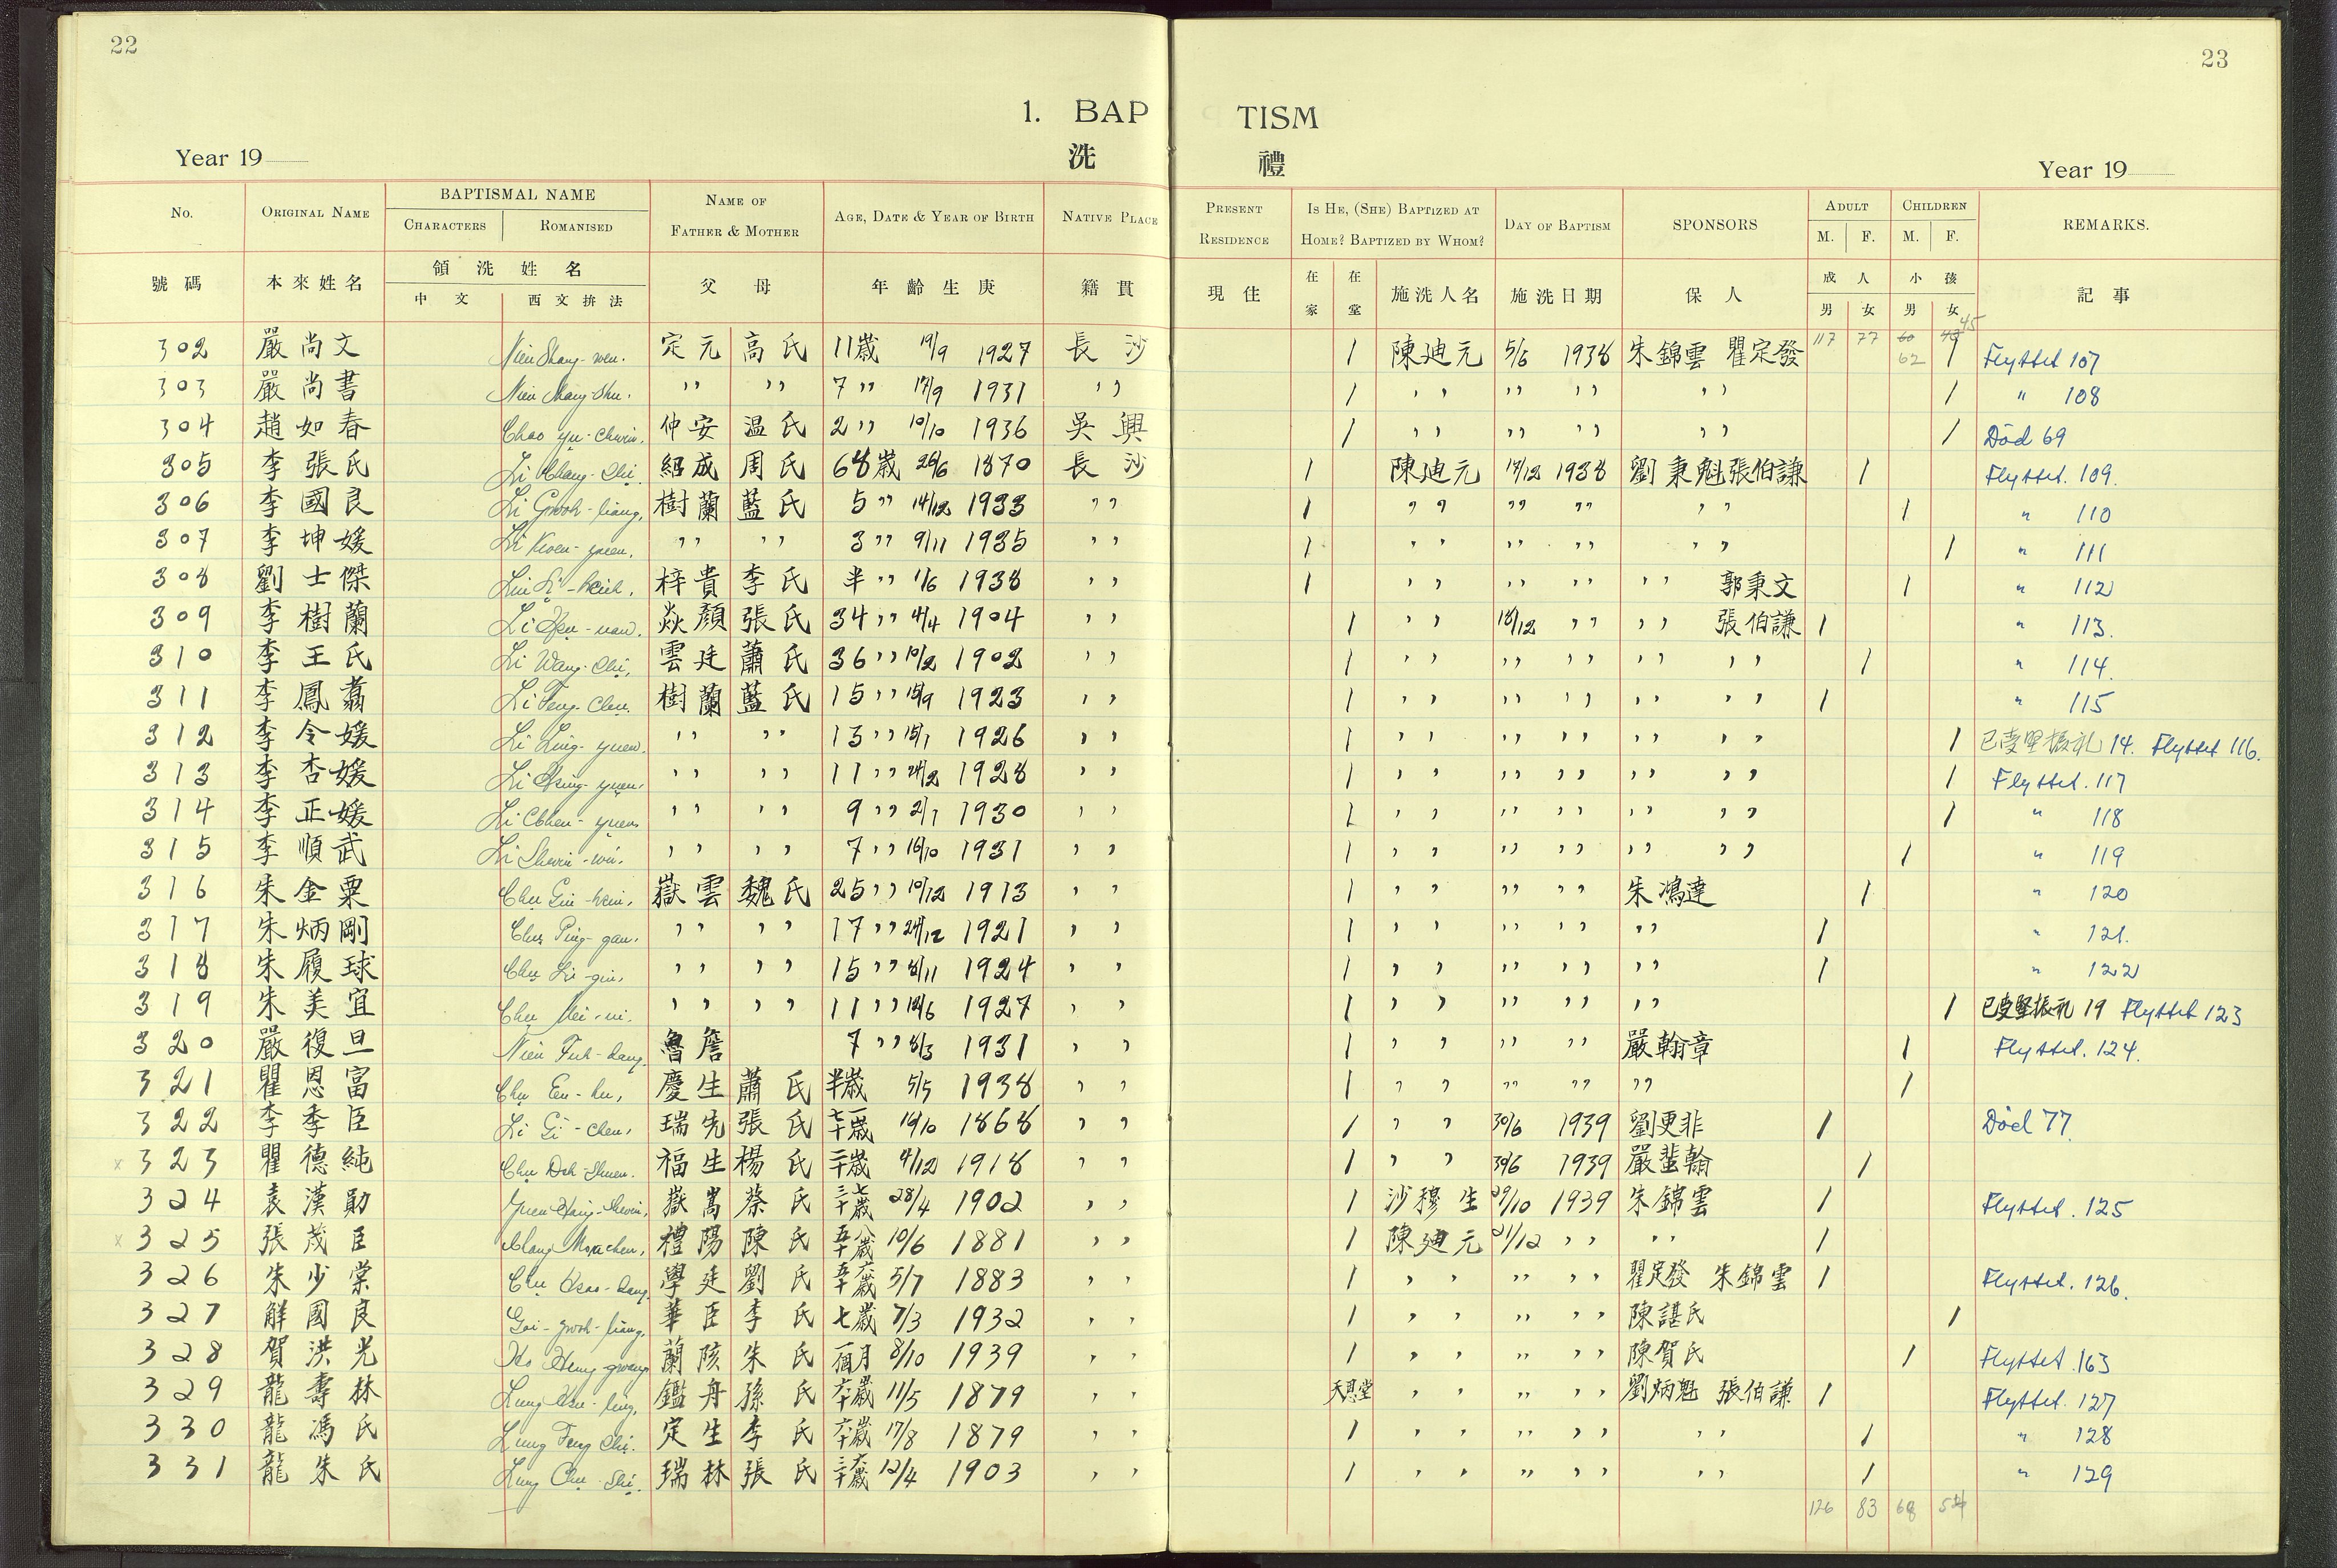 22
23
1. BAP TISM
Year 19
洗 禮
Year 19
No. ORIGINAL NAME BAPTISMAL NAME CHARACTERS ROMANISED NAME OF FATHER & MOTHER AGE, DATE & YEAR OF BIRTH NATIVE PLACE PRESENT RESIDENCE IS HE, (SHE) BAPTIZED AT HOME? BAPTIZED BY WHOM? DAY OF BAPTISM SPONSORS ADULT M. F. CHILDREN M. F. REMARKS.
號碼 本來姓名 領洗姓名 中文 西文拚法 父 母 年齡生庚 籍貫 現住 在家 在堂 施洗人名 施洗日期 保人 成人 男 女 小孩 男 女 記事
117 77 60 62 45
302 嚴尚文 Nien Shang-wen. 定元 高氏 11歲 19/9 1927 長沙 1 陳廸元 5/6 1938 朱錦雲 瞿定發 1 Flyttet 107
303 嚴尚書 Nien Shang-Shu. " " 7 " 17/9 1931 " 1 " " " " 1 " 108
304 趙如春 Chao yu-chuin. 仲安 温氏 2 " 10/10 1936 吳興 1 " " " " 1 Död 69
305 李張氏 Li Chang-Chi. 紹成 周氏 68歲 26/6 1870 長沙 1 陳廸元 17/12 1938 劉秉魁 張伯謙 1 Flyttet. 109.
306 李國良 Li Gwoh-liang. 樹蘭 藍氏 5 " 14/12 1933 " 1 " " " " 1 " 110
307 李坤媛 Li Kwen-yuen. " " 3 " 9/11 1935 " 1 " " " " 1 " 111
308 劉士傑 梓貴 李氏 半 " 1/6 1938 " 1 " " " " 郭秉文 1 " 112
309 李樹蘭 焱顏 張氏 34 " 4/4 1904 " 1 " 18/12 " " 張伯謙 1 " 113.
310 李王氏 Li Wang-Chi. 雲廷 蕭氏 36 " 10/2 1902 " 1 " " " " " 1 " 114.
311 李鳳翥 Li Feng-Chu. 樹蘭 藍氏 15 " 15/9 1923 " 1 " " " " " 1 " 115
312 李令媛 Li Ling-yuen. " " 13 " 15/1 1926 " 1 " " " " " 1 已受堅振礼 14. Flyttet 116.
313 李杏媛 Li Hsing-yuen. " " 11 " 24/2 1928 " 1 " " " " " 1 Flyttet. 117
314 李正媛 Li Chen-yuen. " " 9 " 2/7 1930 " 1 " " " " " 1 " 118
315 李順武 Li Shuin-wu. " " 7 " 16/10 1931 " 1 " " " " " 1 " 119
316 朱金粟 嶽雲 魏氏 25 " 10/12 1913 " 1 " " " 朱鴻達 1 " 120
317 朱炳剛 Chu Ping-gan. " " 17 " 24/12 1921 " 1 " " " " 1 " 121.
318 朱履球 Chu Li-giu. " " 15 " 8/11 1924 " 1 " " " " 1 " 122
319 朱美宜 Chu Mei-ni. " " 11 " 12/6 1927 " 1 " " " " 1 已受堅振礼 19 Flyttet 123
320 嚴復旦 Nien Fuh-dang 魯詹 7 " 8/3 1931 " 1 " " " 嚴翰章 1 Flyttet. 124.
321 瞿恩富 Chu En-hu. 慶生 蕭氏 半歲 5/5 1938 " 1 " " " " 1
322 李季臣 Li Gi-chen. 瑞先 張氏 七十一歲 19/10 1868 " 1 " 30/6 1939 劉更非 1 Död 77.
x 323 瞿德純 Chu Deh-Shuen. 福生 楊氏 二十歲 4/12 1918 " 1 " 30/6 1939 嚴蜚翰 1
324 袁漢勛 嶽嵩 蔡氏 三十七歲 28/4 1902 " 1 沙穆生 29/10 1939 朱錦雲 1 Flyttet. 125
x 325 張茂臣 禮陽 陳氏 五十八歲 10/6 1881 " 1 陳廸元 21/12 " " 1
326 朱少棠 學廷 劉氏 五十六歲 5/7 1883 " 1 " " " 瞿定發 朱錦雲 1 Flyttet. 126.
327 解國良 Gai-gwoh-liang. 華臣 李氏 七歲 7/3 1932 " 1 " " " 陳諶氏 1
328 賀洪光 Ho Hung gwang 蘭陔 朱氏 一個月 8/10 1939 " 1 " " " 陳賀氏 1 Flyttet .163
329 龍壽林 鑑舟 孫氏 六十歲 11/5 1879 " 天恩堂 " " " 劉炳魁 張伯謙 1 Flyttet. 127
330 龍馮氏 Lung Feng Chi. 定生 李氏 六十歲 17/8 1879 " 1 " " " " 1 " 128
331 龍朱氏 Lung Chu-Shi. 瑞林 張氏 三十六歲 12/4 1903 " 1 " " " " 1 " 129
126 83 68 54